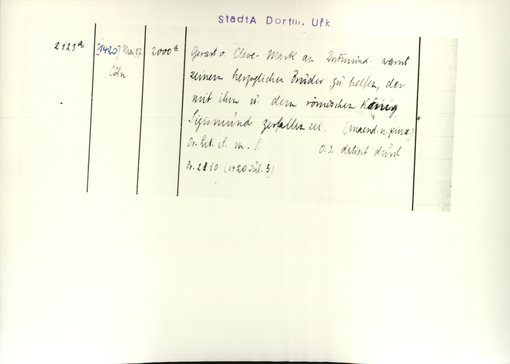 StadtA Dortm. Urk
2129a [1420] Mai 27 2000a Gerart v. Cleve-Mark an Dortmund: warnt
Cöln seinem herzoglichen Bruder zu helfen, der
mit ihm u. dem römischen König
Sigismund zerfallen sei.
Or. lit. cl. m. S. o. J. datiert durch
nr. 2130 (1420 Juli 3)